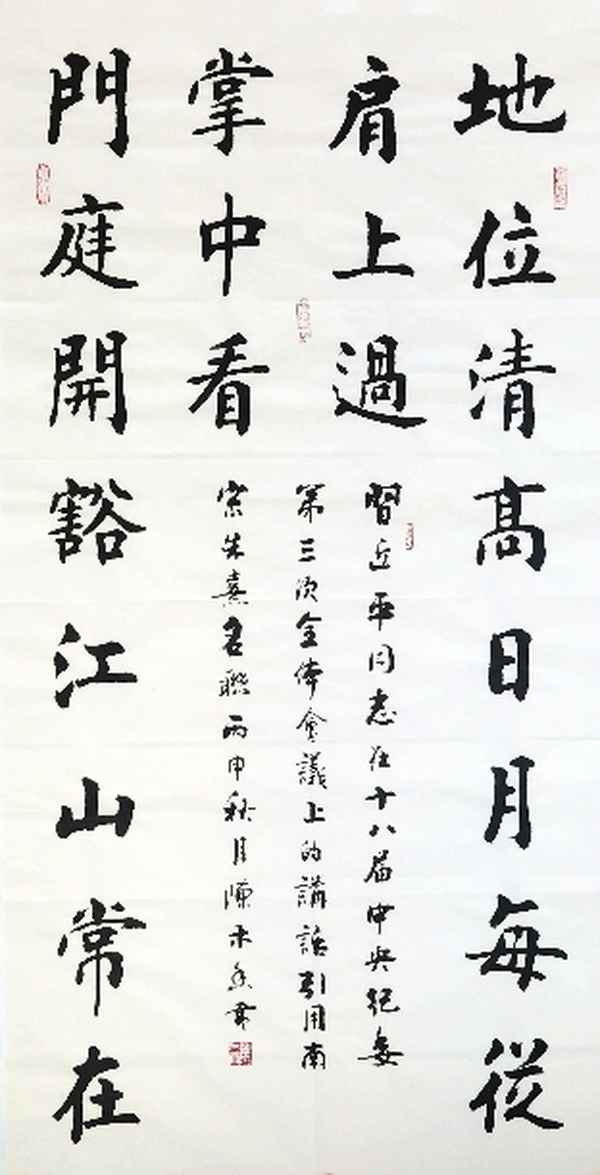 地位清高日月每從
肩上過
門庭開豁江山常在
掌中看
習近平同志在十八届中央紀委
第三次全体會議上的講話引用南
宋朱熹名聯丙申秋月陳木